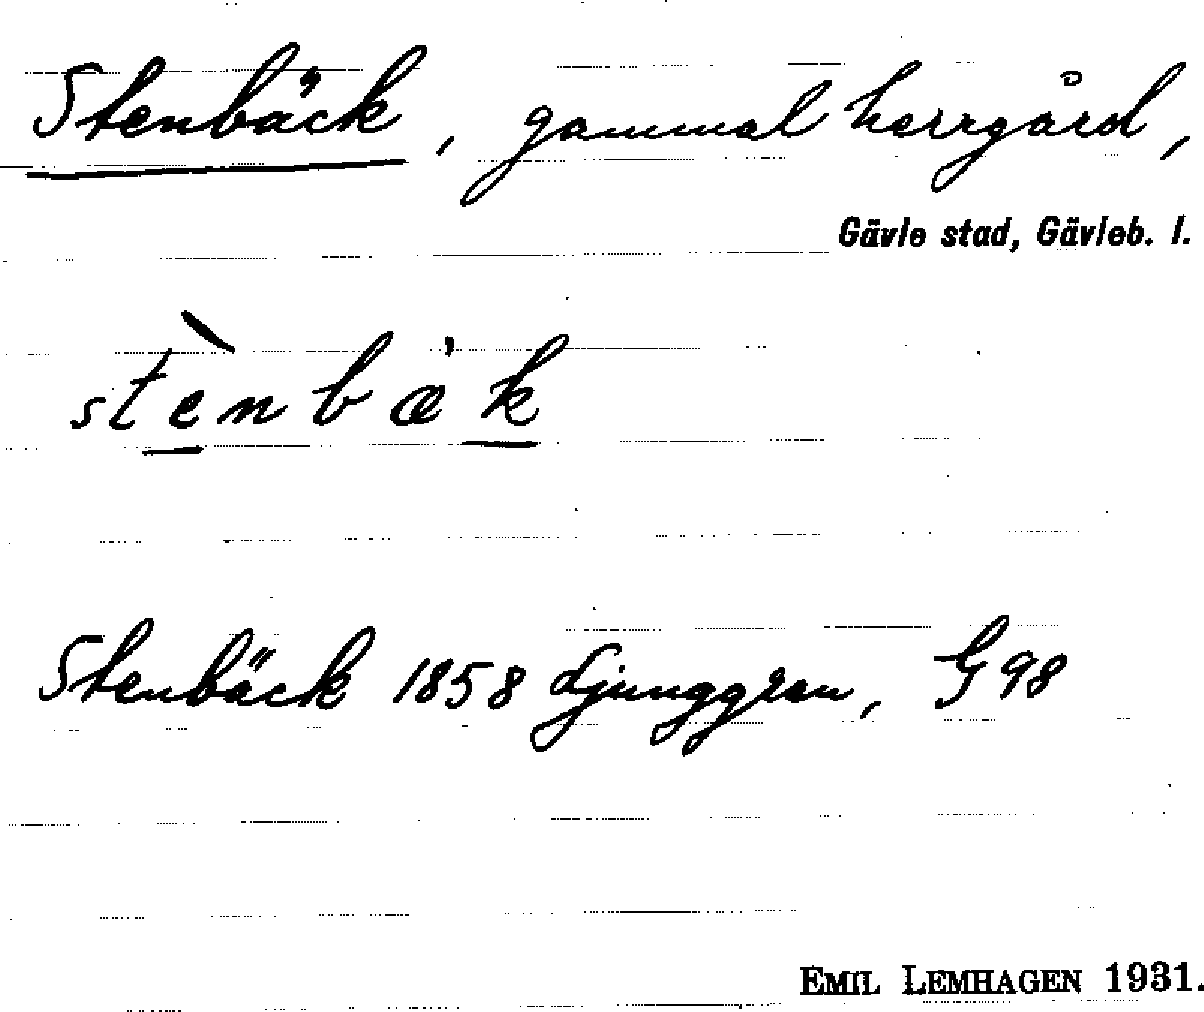 Stenbäck, gammal herrgård,
Gävle stad, Gävleb. l.
stènbæ̀k
Stenbäck 1858 Ljunggren, G 98
EMIL LEMHAGEN 1931.